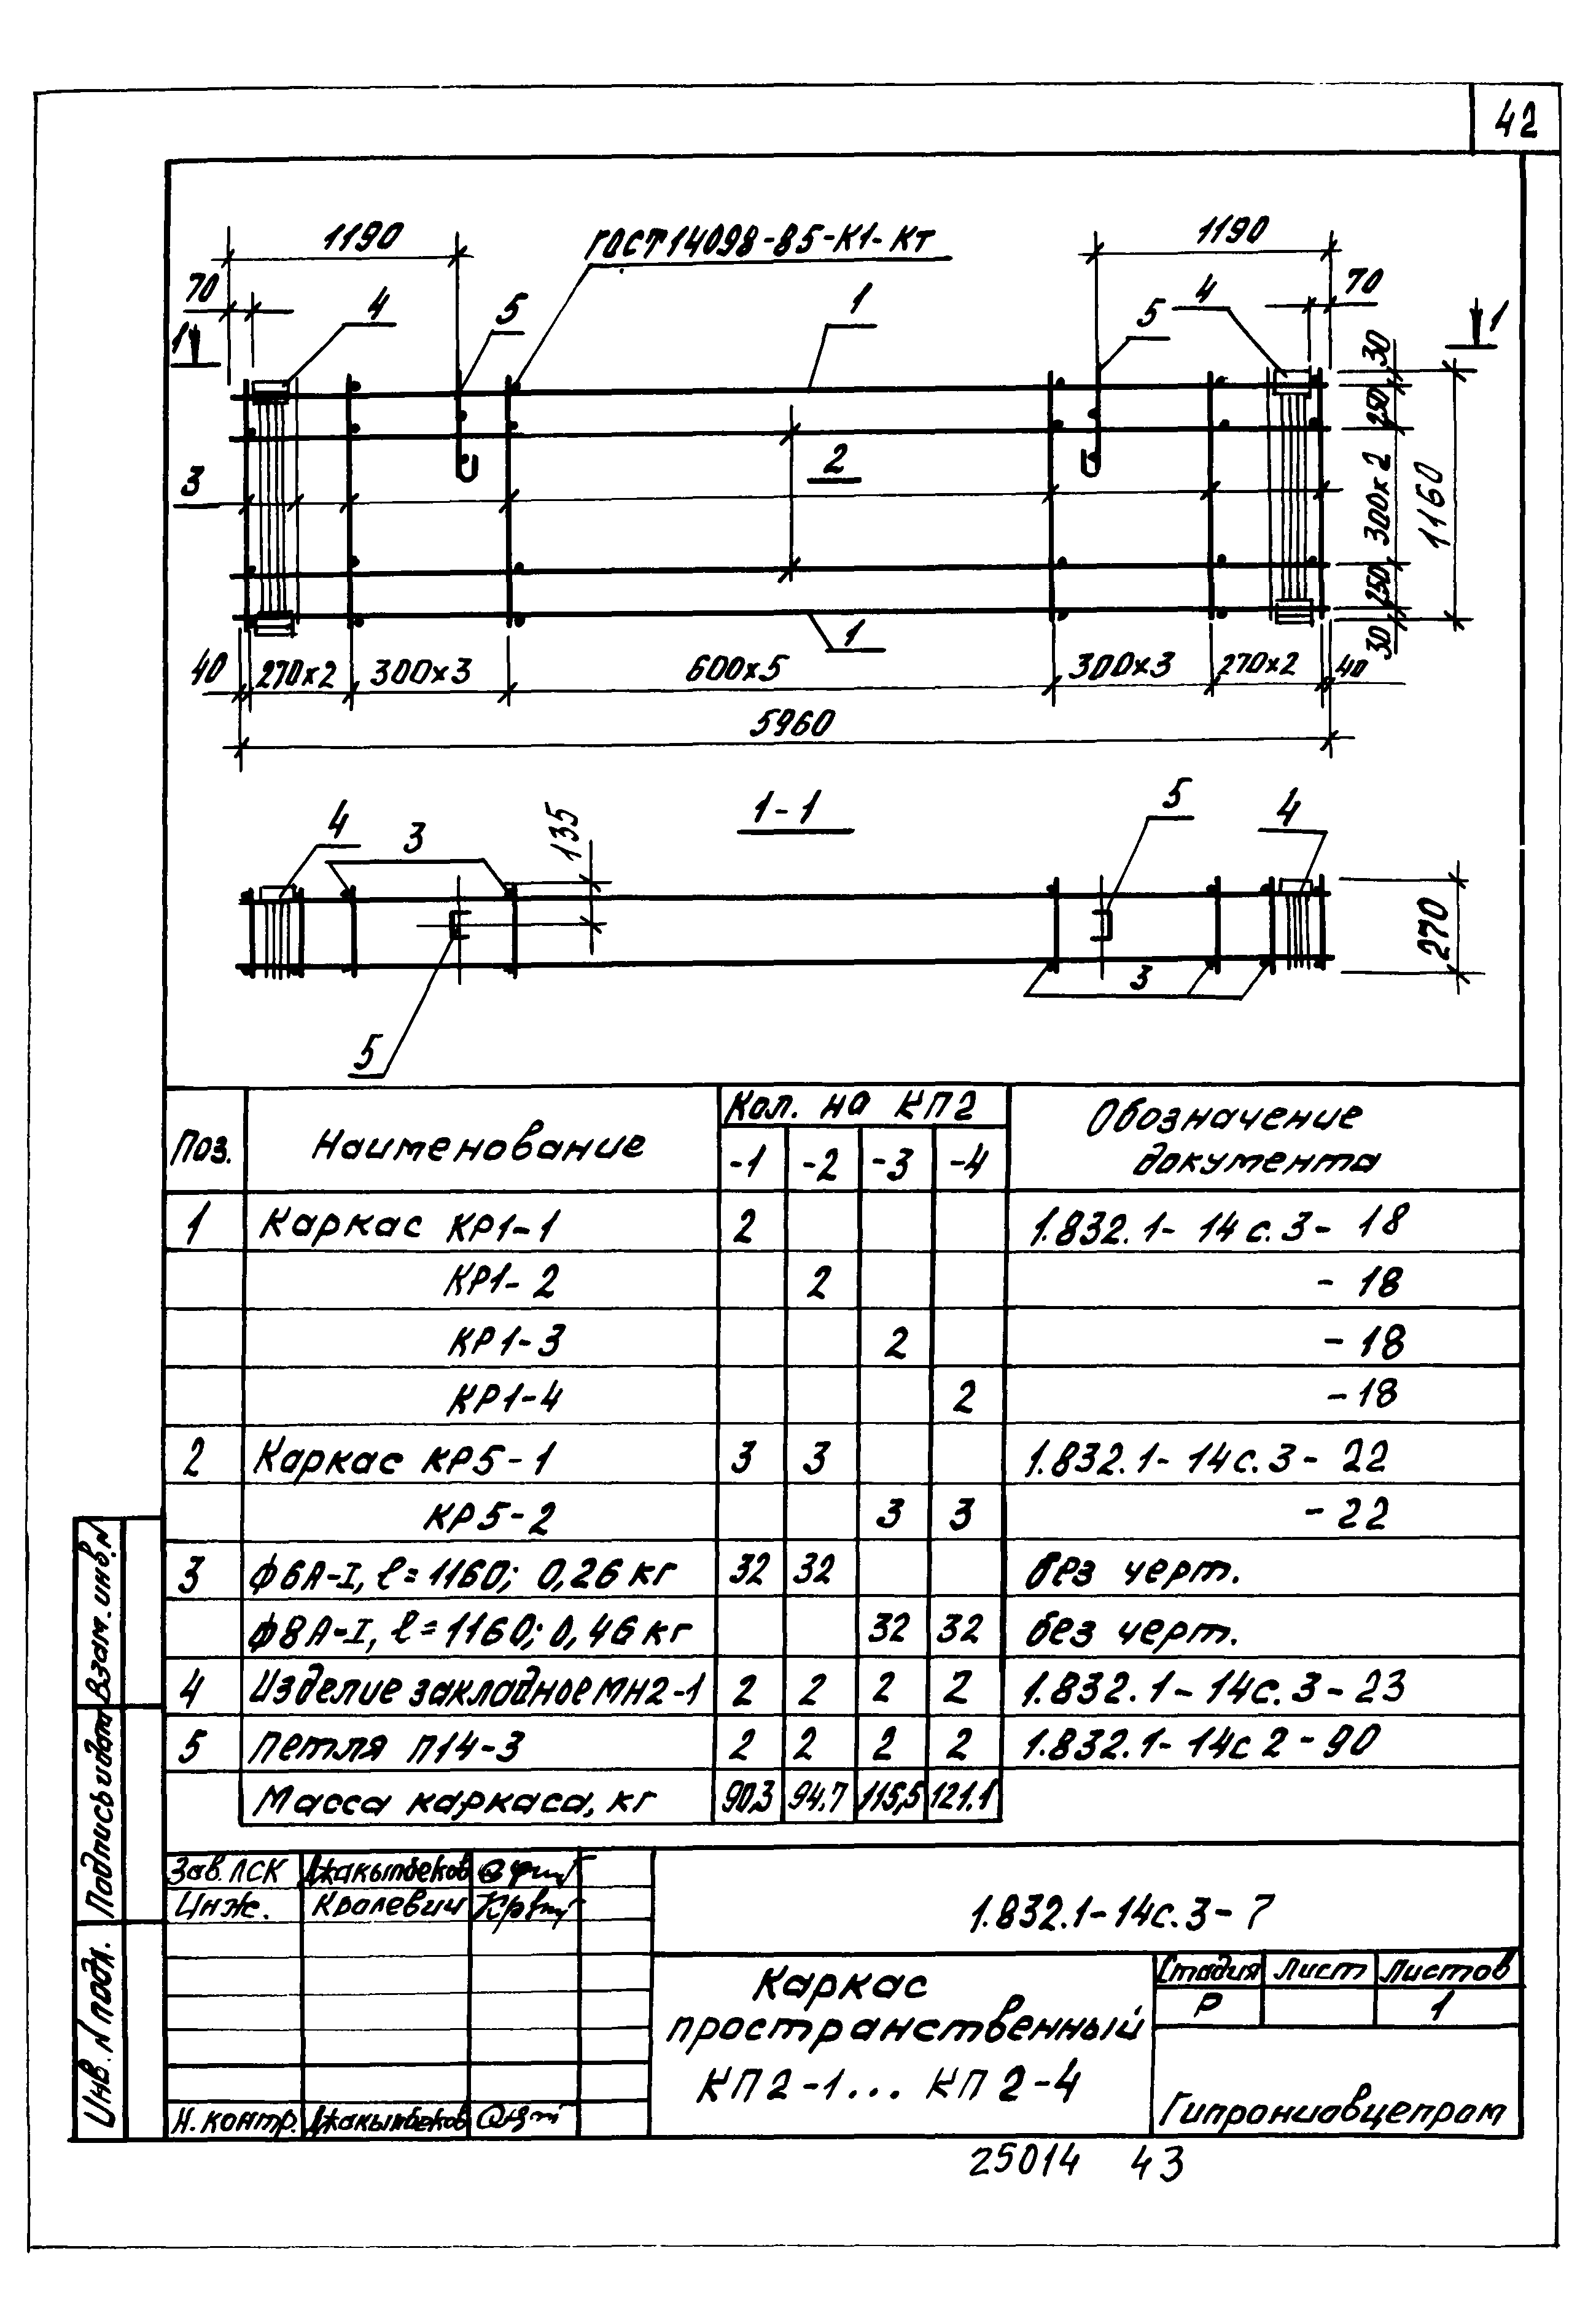 42
1190
ГОСТ 14098-85-К1-Кт
1190
70
4
5
1
5
4
70
1
1
30
250
300х2
250
30
1160
3
2
1
40
270х2
300х3
600х5
300х3
270х2
40
5960
1-1
4
3
135
5
4
270
3
5
Поз.
Наименование
Кол. на КП2
-1
-2
-3
-4
Обозначение документа
1 Каркас КР1-1 2 1.832.1-14с.3-18
КР1-2 2 -18
КР1-3 2 -18
КР1-4 2 -18
2 Каркас КР5-1 3 3 1.832.1-14с.3-22
КР5-2 3 3 -22
3 ф6А-I, ℓ=1160; 0,26кг 32 32 без черт.
ф8А-I, ℓ=1160; 0,46кг 32 32 без черт.
4 Изделие закладное МН2-1 2 2 2 2 1.832.1-14с.3-23
5 Петля П14-3 2 2 2 2 1.832.1-14с 2-90
Масса каркаса, кг 90,3 94.7 115,5 121.1
Взам. инв. N
Подпись и дата
Инв. N подл.
Зав. ЛСК Джакыпбеков
Инж. Кралевич
Н. контр. Джакыпбеков
1.832.1-14с.3-7
Каркас
пространственный
КП2-1... КП2-4
Стадия Лист Листов
Р 1
Гипрониавцепром
25014 43